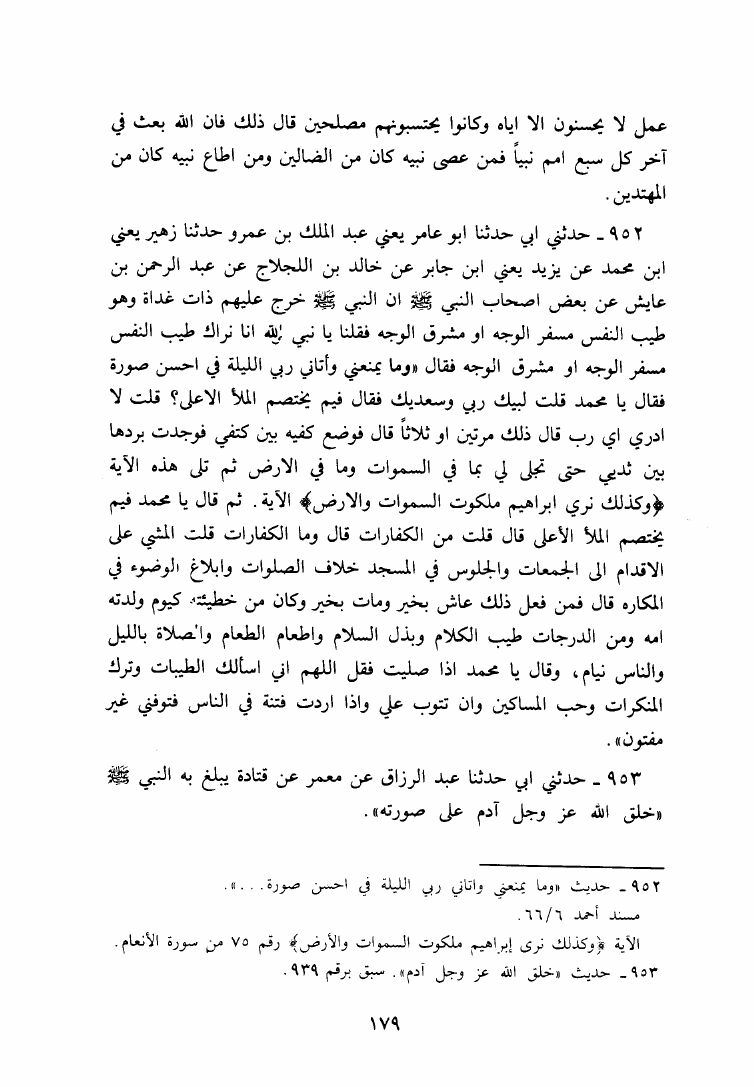 عمل لا يحسنون الا اياه وكانوا يحتسبونهم مصلحين قال ذلك فان الله بعث في
آخر كل سبع امم نبياً فمن عصى نبيه كان من الضالين ومن اطاع نبيه كان من
المهتدين.
٩٥٢ ـ حدثني ابي حدثنا ابو عامر يعني عبد الملك بن عمرو حدثنا زهير يعني
ابن محمد عن يزيد يعني ابن جابر عن خالد بن اللجلاج عن عبد الرحمن بن
عايش عن بعض اصحاب النبي ﷺ ان النبي ﷺ خرج عليهم ذات غداة وهو
طيب النفس مسفر الوجه او مشرق الوجه فقلنا يا نبي الله انا نراك طيب النفس
مسفر الوجه او مشرق الوجه فقال «وما يمنعني وأتاني ربي الليلة في احسن صورة
فقال يا محمد قلت لبيك ربي وسعديك فقال فيم يختصم الملأ الاعلى؟ قلت لا
ادري اي رب قال ذلك مرتين او ثلاثاً قال فوضع كفيه بين كتفي فوجدت بردها
بين ثديي حتى تجلى لي بما في السموات وما في الارض ثم تلى هذه الآية
﴿وكذلك نري ابراهيم ملكوت السموات والارض﴾ الآية. ثم قال يا محمد فيم
يختصم الملأ الأعلى قال قلت من الكفارات قال وما الكفارات قلت المشي على
الاقدام الى الجمعات والجلوس في المسجد خلاف الصلوات وابلاغ الوضوء في
المكاره قال فمن فعل ذلك عاش بخير ومات بخير وكان من خطيئته كيوم ولدته
امه ومن الدرجات طيب الكلام وبذل السلام واطعام الطعام والصلاة بالليل
والناس نيام، وقال يا محمد اذا صليت فقل اللهم اني اسألك الطيبات وترك
المنكرات وحب المساكين وان تتوب علي واذا اردت فتنة في الناس فتوفني غير
مفتون».
٩٥٣ ـ حدثني ابي حدثنا عبد الرزاق عن معمر عن قتادة يبلغ به النبي ﷺ
«خلق الله عز وجل آدم على صورته».
٩٥٢ ـ حديث «وما يمنعني واتاني ربي الليلة في احسن صورة...».
مسند أحمد ٦٦/٦.
الآية ﴿وكذلك نرى إبراهيم ملكوت السموات والأرض﴾ رقم ٧٥ من سورة الأنعام.
٩٥٣ ـ حديث «خلق الله عز وجل آدم». سبق برقم ٩٣٩.
١٧٩